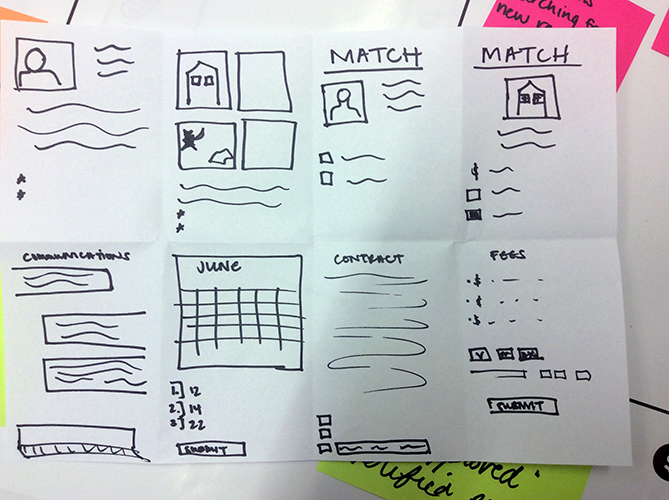 new
MATCH
MATCH
$
COMMUNICATIONS
JUNE
1.] 12
2.] 14
3.] 22
SUBMIT
CONTRACT
FEES
·$
·$
·$
V
SUBMIT